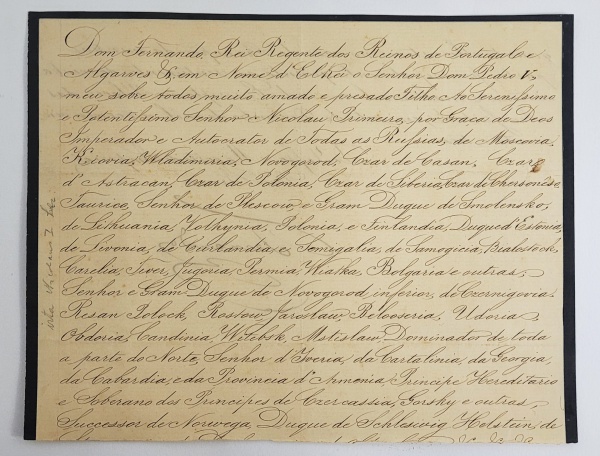 Dom Fernando, Rei Regente dos Reinos de Portugal e
Algarves &, em Nome d'ElRei o Senhor Dom Pedro V,
meu sobre todos muito amado e presado Filho. Ao Serenissimo
e Potentissimo Senhor Nicolau Primeiro, por Graça de Deos
Imperador e Autocrator de Todas as Russias, de Moscovia,
Kiovia, Wladimiria, Novogorod, Czar de Casan, Czar
d'Astracan, Czar de Polonia, Czar de Siberia, Czar d'Chersonèse
Taurice, Senhor de Plescow e Gram Duque de Smolensko,
de Lithuania, Volhynia, Polonia, e Finlandia, Duque d'Estonia,
de Livonia, de Curlandia, e Semigalia, de Samogicia, Bialostock,
Carelia, Twer, Jugoria, Permia, Wiatka, Bolgaria e outras,
Senhor e Gram Duque de Novogorod inferior, de Czernigovia,
Resan, Polock, Rostow, Jaroslaw, Belooseria, Udoria,
Obdoria, Candinia, Witebsk, Mstislaw, Dominador de toda
a parte do Norte, Senhor d'Yveria, da Cartalinea, da Georgia,
da Cabardia, e da Provincia d'Armenia; Principe Hereditario
e Soberano dos Principes de Czercassia, Gorsky e outras,
Successor de Norwega, Duque de Schleswig Holstein, de